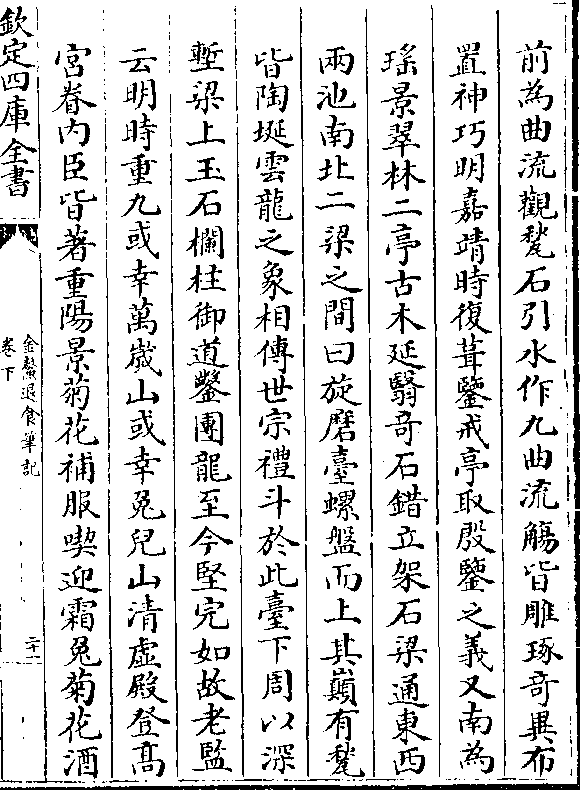 前為曲流觀甃石引水作九曲流觴皆雕琢奇異布
置神巧明嘉靖時復葺鑒戒亭取殷鑒之義又南為
瑤景翠林二亭古木延翳奇石錯立架石梁通東西
兩池南北二梁之間曰旋磨臺螺盤而上其巔有甃
皆陶埏雲龍之象相傳世宗禮斗於此臺下周以深
塹梁上玉石欄柱御道鑿團龍至今堅完如故老監
云明時重九或幸萬嵗山或幸兔兒山清虛殿登髙
宮眷内臣皆著重陽景菊花補服喫迎霜兔菊花酒
欽定四庫全書
金鰲退食筆記
卷下
二十一